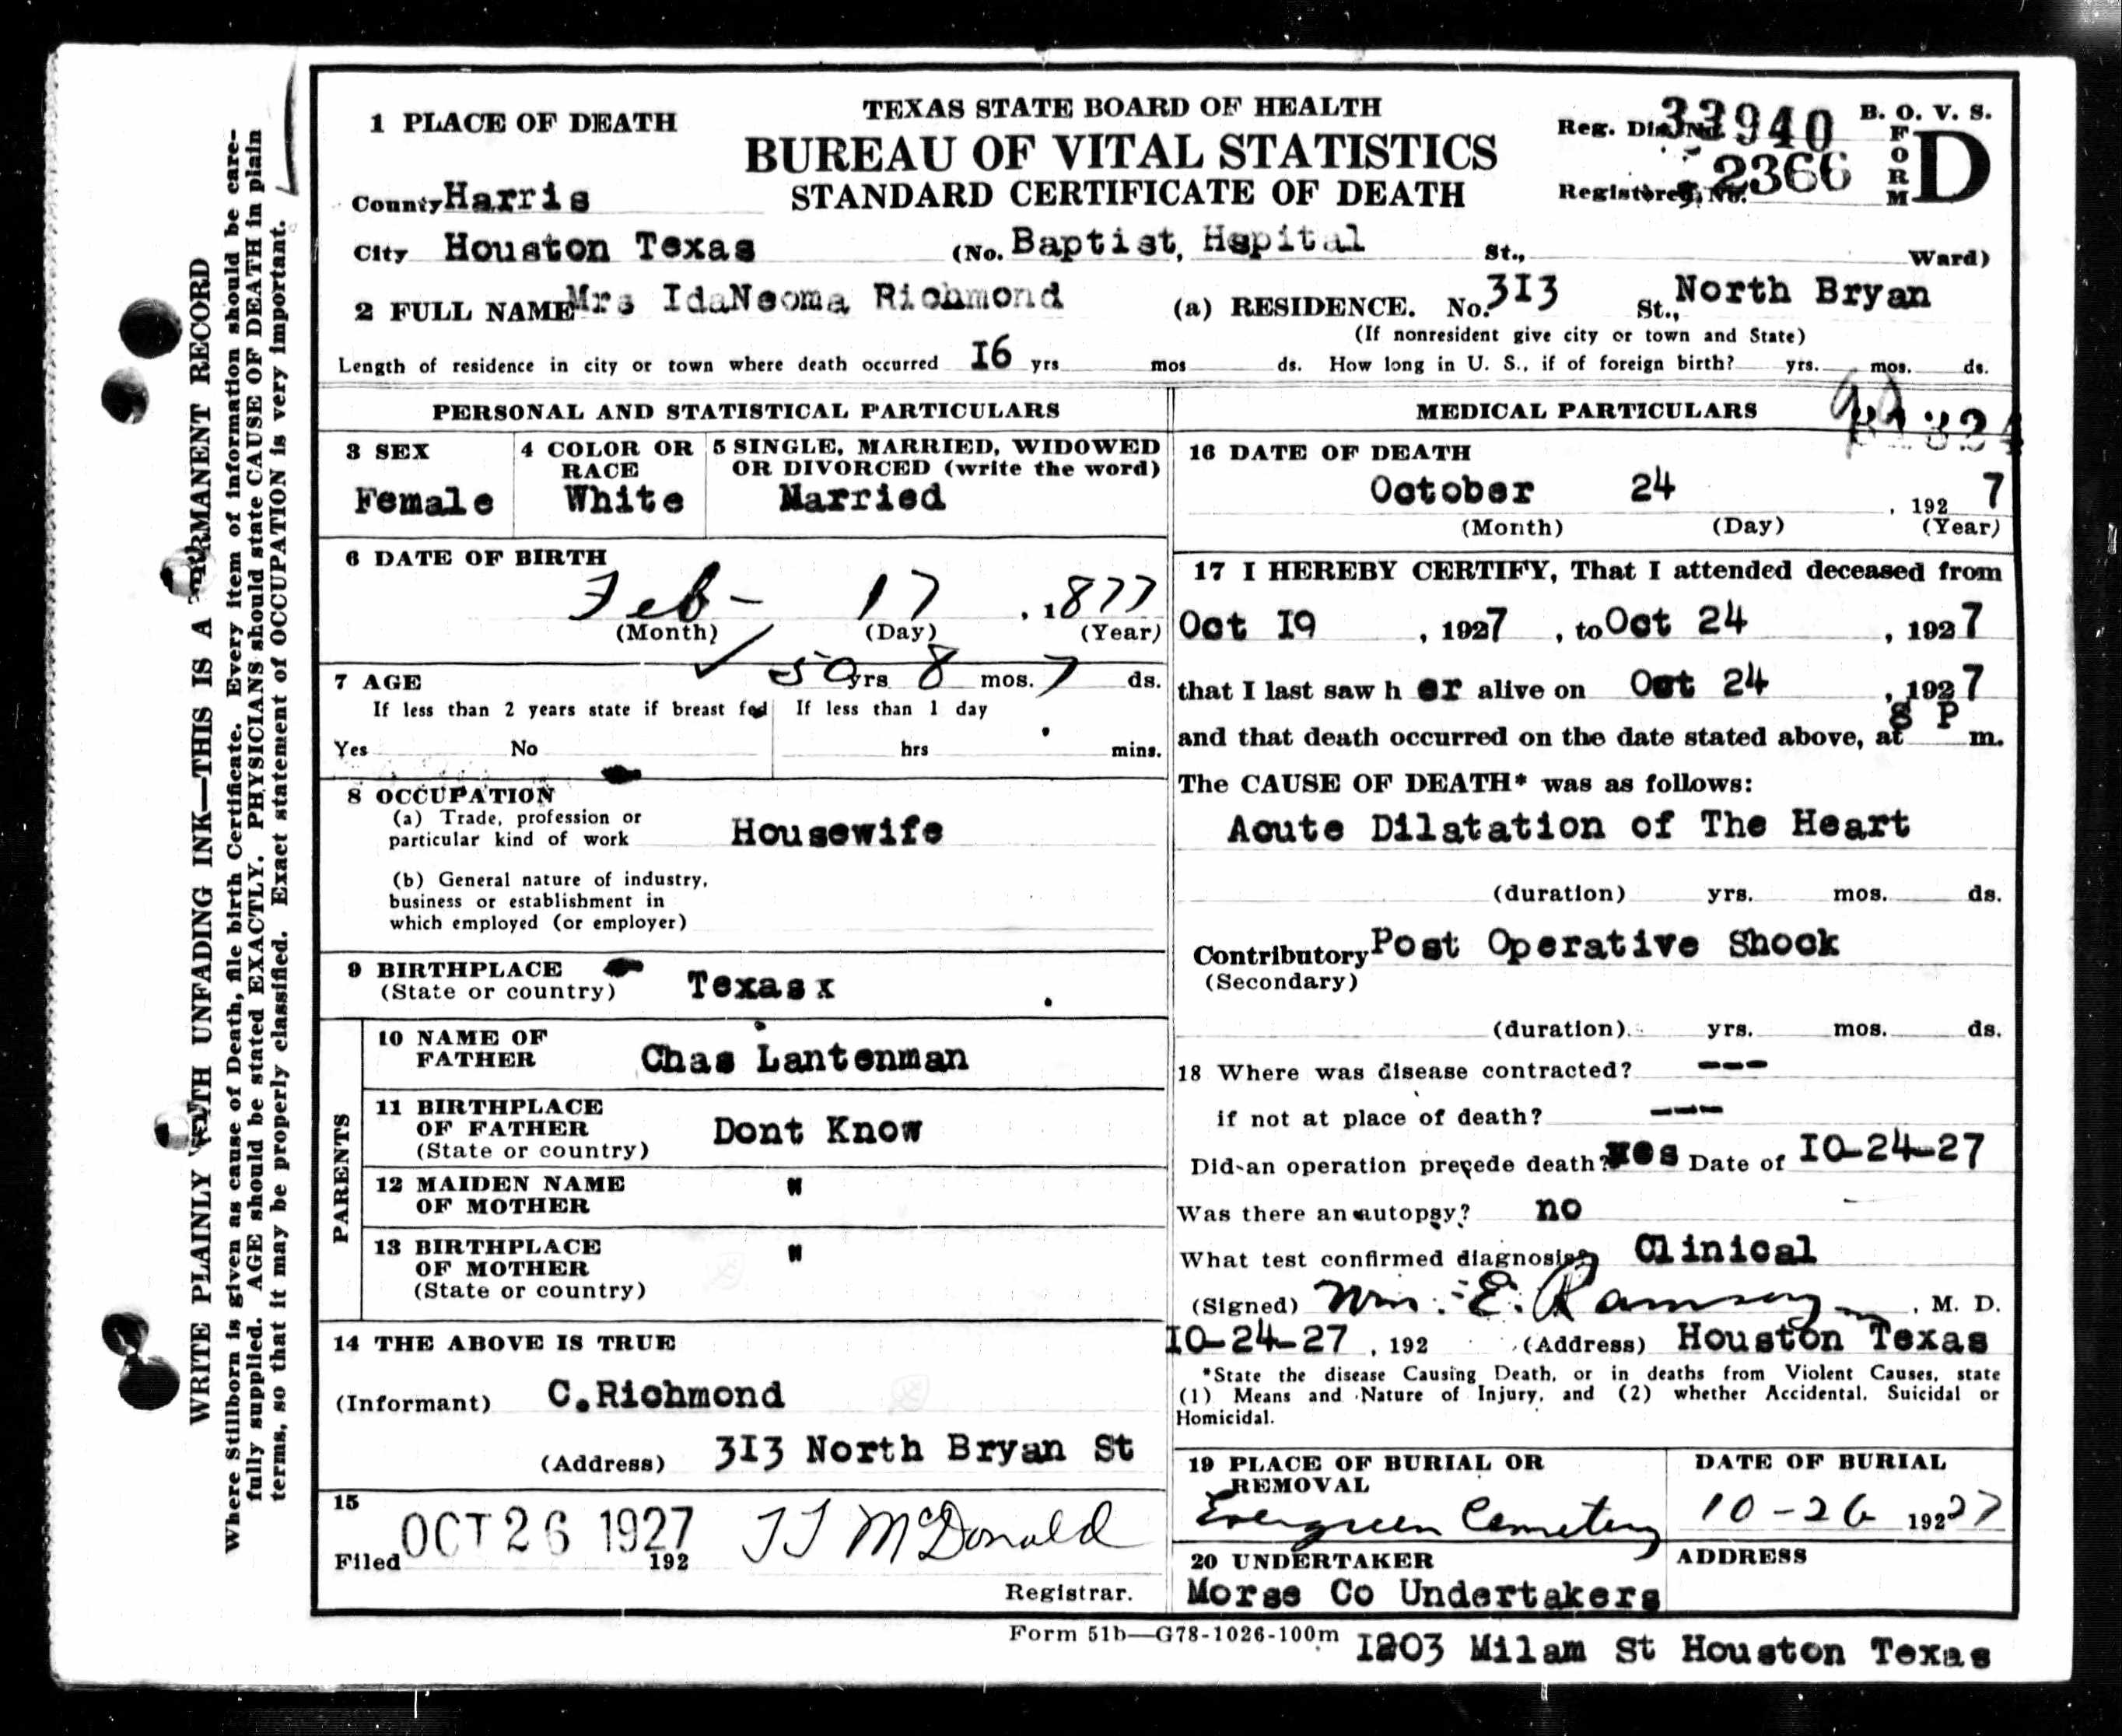 WRITE PLAINLY WITH UNFADING INK—THIS IS A PERMANENT RECORD
Where Stillborn is given as cause of Death, file birth Certificate. Every item of information should be care-
fully supplied. AGE should be stated EXACTLY. PHYSICIANS should state CAUSE OF DEATH in plain
terms, so that it may be properly classified. Exact statement of OCCUPATION is very important.
TEXAS STATE BOARD OF HEALTH
BUREAU OF VITAL STATISTICS
STANDARD CERTIFICATE OF DEATH
Reg. Dis. No. 33940
Registered No. 2366
B. O. V. S.
FORM D
1 PLACE OF DEATH
County Harris
City Houston Texas (No. Baptist, Hspital St., Ward)
2 FULL NAME Mrs IdaNeoma Richmond (a) RESIDENCE. No. 3I3 St., North Bryan
(If nonresident give city or town and State)
Length of residence in city or town where death occurred I6 yrs mos ds. How long in U. S., if of foreign birth? yrs. mos. ds.
PERSONAL AND STATISTICAL PARTICULARS
3 SEX
Female
4 COLOR OR RACE
White
5 SINGLE, MARRIED, WIDOWED
OR DIVORCED (write the word)
Married
6 DATE OF BIRTH
Feb - 17 , 1877
(Month) (Day) (Year)
7 AGE 50 yrs 8 mos. 7 ds.
If less than 2 years state if breast fed If less than 1 day
Yes No hrs mins.
8 OCCUPATION
(a) Trade, profession or
particular kind of work Housewife
(b) General nature of industry,
business or establishment in
which employed (or employer)
9 BIRTHPLACE
(State or country) Texas x
PARENTS
10 NAME OF
FATHER Chas Lantenman
11 BIRTHPLACE
OF FATHER
(State or country) Dont Know
12 MAIDEN NAME
OF MOTHER "
13 BIRTHPLACE
OF MOTHER "
(State or country)
14 THE ABOVE IS TRUE
(Informant) C.Richmond
(Address) 3I3 North Bryan St
15
Filed OCT 26 1927 192 TJ McDonald
Registrar.
MEDICAL PARTICULARS
16 DATE OF DEATH
October 24 , 192 7
(Month) (Day) (Year)
17 I HEREBY CERTIFY, That I attended deceased from
Oct I9 , 1927 , to Oct 24 , 1927
that I last saw h er alive on Oct 24 , 1927
and that death occurred on the date stated above, at 8 P m.
The CAUSE OF DEATH* was as follows:
Acute Dilatation of The Heart
(duration) yrs. mos. ds.
Contributory Post Operative Shock
(Secondary)
(duration) yrs. mos. ds.
18 Where was disease contracted? ---
if not at place of death? ---
Did an operation precede death? yes Date of I0-24-27
Was there an autopsy? no
What test confirmed diagnosis? Clinical
(Signed) Wm. E. Ramsey , M. D.
I0-24-27 , 192 (Address) Houston Texas
*State the disease Causing Death, or in deaths from Violent Causes, state
(1) Means and Nature of Injury, and (2) whether Accidental, Suicidal or
Homicidal.
19 PLACE OF BURIAL OR
REMOVAL
Evergreen Cemetery
DATE OF BURIAL
10-26 19227
20 UNDERTAKER
Morse Co Undertakers
ADDRESS
Form 51b—G78-1026-100m
I203 Milam St Houston Texas